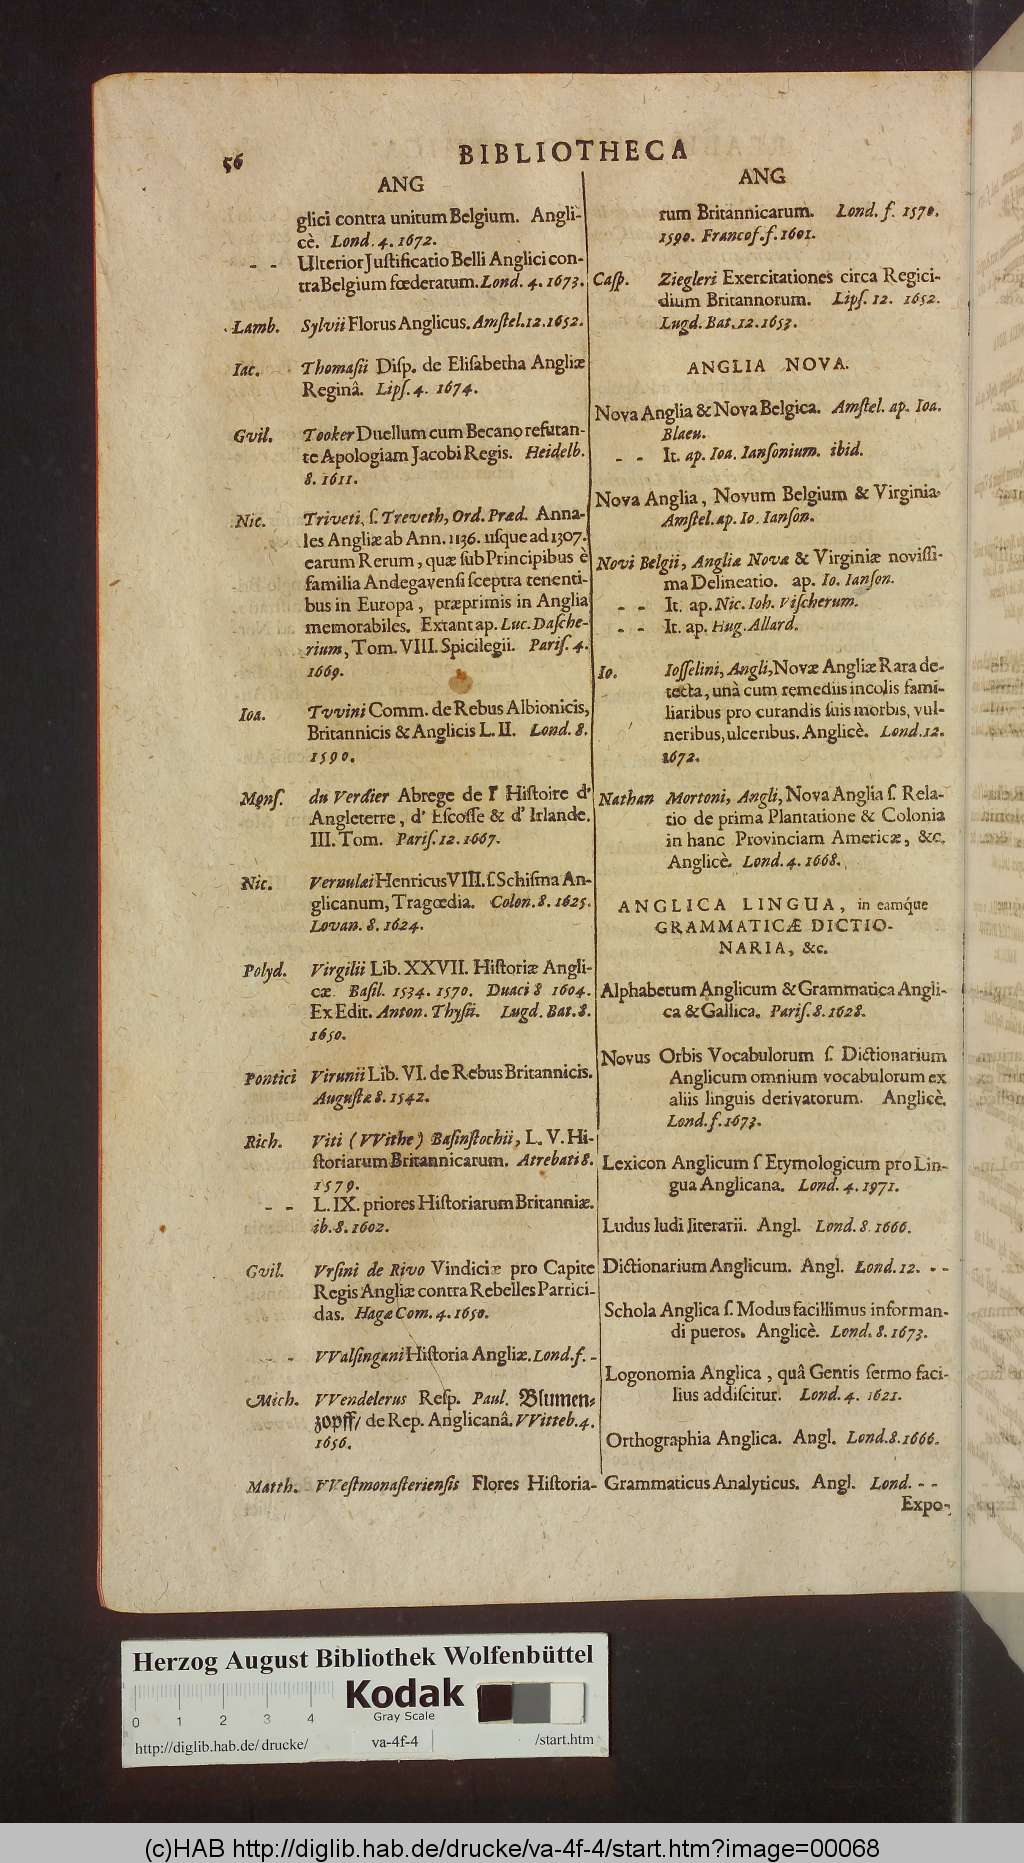 56
BIBLIOTHECA
ANG
glici contra unitum Belgium. Angli-
cè. Lond. 4. 1672.
- - Ulterior Juſtificatio Belli Anglici con-
tra Belgium fœderatum. Lond. 4. 1673.
Lamb. Sylvii Florus Anglicus. Amſtel. 12. 1652.
Iac. Thomaſii Diſp. de Eliſabetha Angliæ
Reginâ. Lipſ. 4. 1674.
Gvil. Tooker Duellum cum Becano refutan-
te Apologiam Jacobi Regis. Heidelb.
8. 1611.
Nic. Triveti, ſ. Treveth, Ord. Præd. Anna-
les Angliæ ab Ann. 1136. uſque ad 1307.
earum Rerum, quæ ſub Principibus è
familia Andegavenſi ſceptra tenenti-
bus in Europa, præprimis in Anglia
memorabiles. Extant ap. Luc. Daſche-
rium, Tom. VIII. Spicilegii. Pariſ. 4.
1669.
Ioa. Tvvini Comm. de Rebus Albionicis,
Britannicis & Anglicis L. II. Lond. 8.
1590.
Monſ. du Verdier Abrege de l' Hiſtoire d'
Angleterre, d' Eſcoſſe & d' Irlande.
III. Tom. Pariſ. 12. 1667.
Nic. Vernulæi Henricus VIII. ſ. Schiſma An-
glicanum, Tragœdia. Colon. 8. 1625.
Lovan. 8. 1624.
Polyd. Virgilii Lib. XXVII. Hiſtoriæ Angli-
cæ Baſil. 1534. 1570. Duaci 8 1604.
Ex Edit. Anton. Thyſii. Lugd. Bat. 8.
1650.
Pontici Virunii Lib. VI. de Rebus Britannicis.
Auguſtæ 8. 1542.
Rich. Viti (VVithe) Baſinſtochii, L. V. Hi-
ſtoriarum Britannicarum. Atrebati 8.
1579.
- - L. IX. priores Hiſtoriarum Britanniæ.
ib. 8. 1602.
Gvil. Vrſini de Rivo Vindiciæ pro Capite
Regis Angliæ contra Rebelles Parrici-
das. Hagæ Com. 4. 1650.
- - VValſingani Hiſtoria Angliæ. Lond. f. -
Mich. VVendelerus Reſp. Paul. Blumen-
zopff/ de Rep. Anglicanâ. VVitteb. 4.
1656.
Matth. VVeſtmonaſterienſis Flores Hiſtoria-
ANG
rum Britannicarum. Lond. f. 1570.
1590. Francof. f. 1601.
Caſp. Ziegleri Exercitationes circa Regici-
dium Britannorum. Lipſ. 12. 1652.
Lugd. Bat. 12. 1653.
ANGLIA NOVA.
Nova Anglia & Nova Belgica. Amſtel. ap. Ioa.
Blaeu.
- - It. ap. Ioa. Ianſonium. ibid.
Nova Anglia, Novum Belgium & Virginia.
Amſtel. ap. Io. Ianſon.
Novi Belgii, Angliæ Novæ & Virginiæ noviſſi-
ma Delineatio. ap. Io. Ianſon.
- - It. ap. Nic. Ioh. Viſcherum.
- - It. ap. Hug. Allard.
Io. Ioſſelini, Angli, Novæ Angliæ Rara de-
tecta, unà cum remediis incolis fami-
liaribus pro curandis ſuis morbis, vul-
neribus, ulceribus. Anglicè. Lond. 12.
1672.
Nathan Mortoni, Angli, Nova Anglia ſ. Rela-
tio de prima Plantatione & Colonia
in hanc Provinciam Americæ, &c.
Anglicè. Lond. 4. 1668.
ANGLICA LINGUA, in eamq́ue
GRAMMATICÆ DICTIO-
NARIA, &c.
Alphabetum Anglicum & Grammatica Angli-
ca & Gallica. Pariſ. 8. 1628.
Novus Orbis Vocabulorum ſ. Dictionarium
Anglicum omnium vocabulorum ex
aliis linguis derivatorum. Anglicè.
Lond. f. 1673.
Lexicon Anglicum ſ Etymologicum pro Lin-
gua Anglicana. Lond. 4. 1971.
Ludus ludi literarii. Angl. Lond. 8. 1666.
Dictionarium Anglicum. Angl. Lond. 12. - -
Schola Anglica ſ. Modus facillimus informan-
di pueros. Anglicè. Lond. 8. 1673.
Logonomia Anglica, quâ Gentis ſermo faci-
lius addiſcitur. Lond. 4. 1621.
Orthographia Anglica. Angl. Lond. 8. 1666.
Grammaticus Analyticus. Angl. Lond. - -
Expo-
Herzog August Bibliothek Wolfenbüttel
Kodak
Gray Scale
0 1 2 3 4
http://diglib.hab.de/drucke/ va-4f-4 /start.htm
(c)HAB http://diglib.hab.de/drucke/va-4f-4/start.htm?image=00068